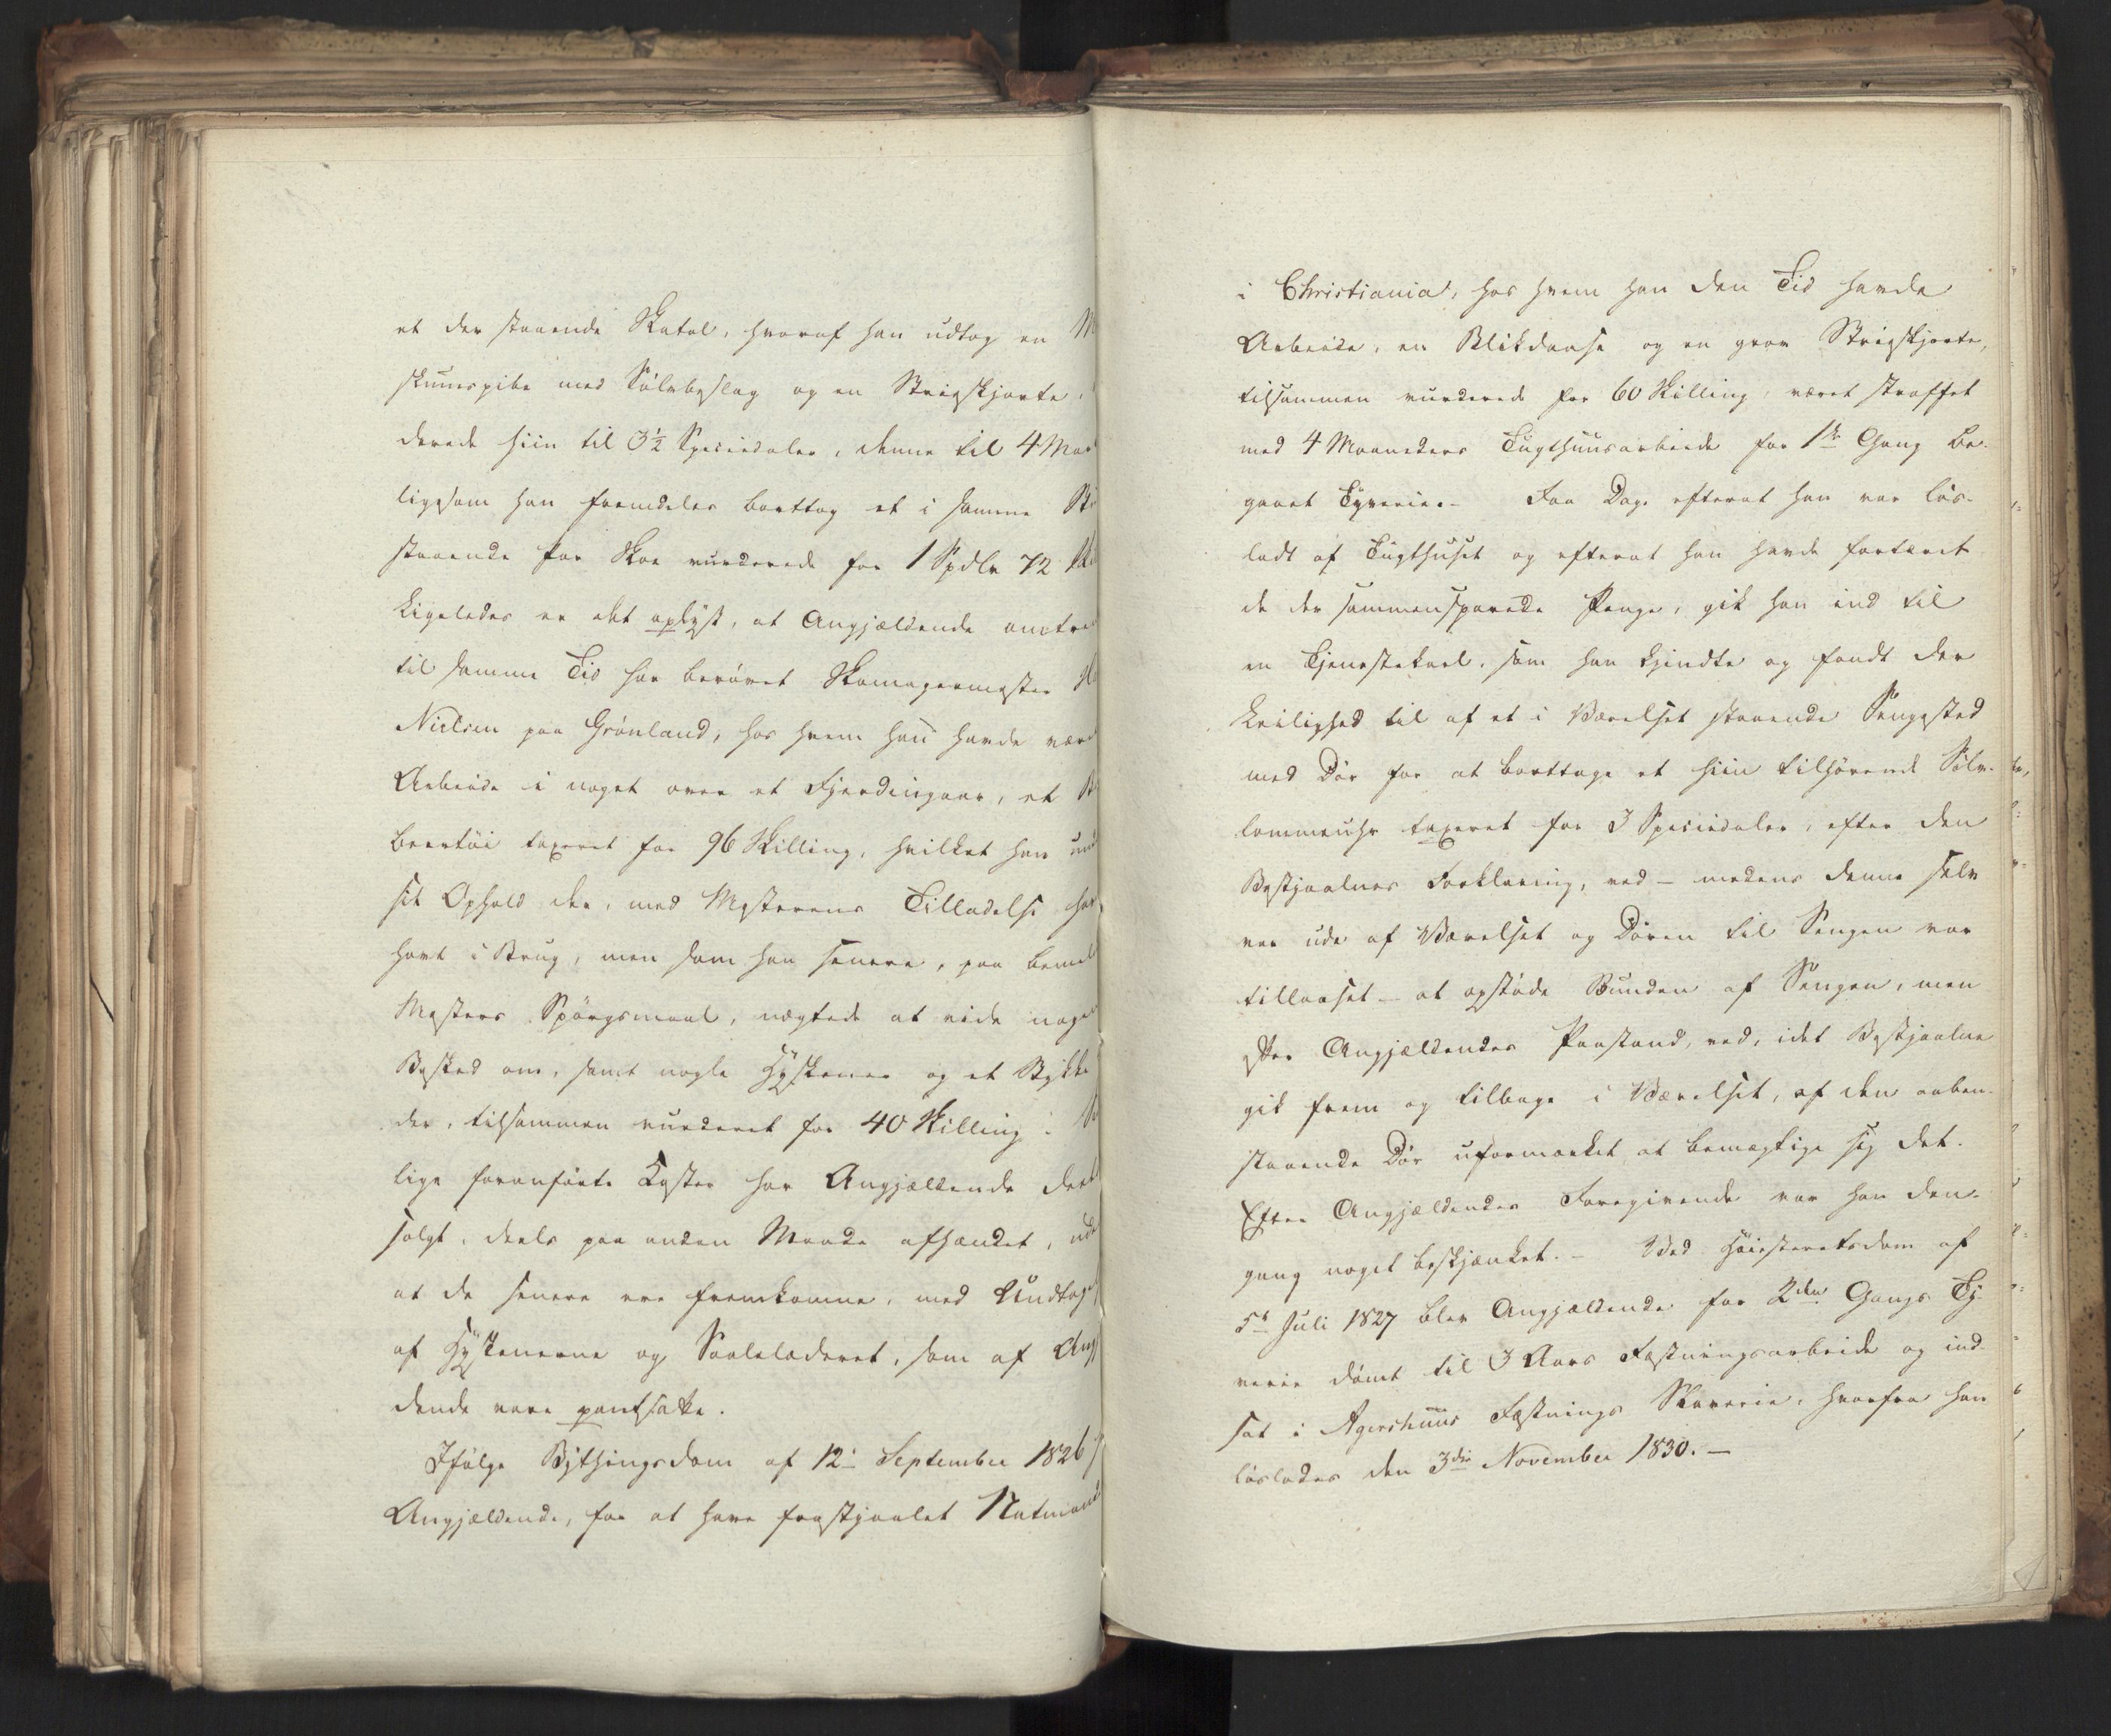 et der staaende Skatol, hvoraf han udtog en M
skumspibe med Sølvbeslag og en Strieskjorte,
derede hiin til 3½ Speciedaler, denne til 4 Mar
ligesom han fremdeles borttog et i samme
staaende Par Skoe vurderede for 1 Spdlr 72
Ligeledes er det oplyst, at Angjældende omtre
til samme Tid har berøvet Skomagermester
Nielsen paa Grønland, hos hvem han havde være
Arbeide i noget over et Fjerdingaar, et
beertøi taxeret for 96 Skilling, hvilket han und
sit Ophold der, med Mesterens Tilladelse har
havt i Brug, men som han senere, paa bemel
Mesters Spørgsmaal, nægtede at vide noge
Besked om, samt nogle Hyskener og et Stykke
der, tilsammen vurderet for 40 Skilling
lige foranførte Koster har Angjældende deel
solgt, deels paa anden Maade afhændet, ude
at de senere ere fremkomne, med Undtage
af Hyskenerne og Saalelæderet, som af Angj
dende vare pantsatte.
Ifølge Bythingsdom af 12te September 1826
Angjældende, for at have frastjaalet Natmand
i Christiania, hos hvem han den Tid havde
Arbeide, en Blikdaase og en grov Strieskjorte,
tilsammen vurderede for 60 Skilling, været straffet
med 4 Maaneders Tugthuusarbeide for 1ste Gang be-
gaaet Tyverie.- Faa Dage efterat han var løs-
ladt af Tugthuset og efterat han havde fortæret
de der sammensparede Penge, gik han ind til
en Tjenestekarl, som han kjendte og fandt der
Leilighed til af et i Værelset staaende Sengested
med Dør for at borttage et hiin tilhørende Sølv-
lommeuhr taxeret for 3 Speciedaler, efter den
Bestjaalnes Forklaring, ved – medens denne selv
var ude af Værelset og Døren til Sengen var
tillaaset – at opstøde Bunden af Sengen, men
efter Angjældendes Paastand, ved, idet Bestjaalne
gik frem og tilbage i Værelset, af den aaben-
staaende Dør uformærket at bemægtige sig det.
Efter Angjældendes Foregivende var han den-
gang noget beskjænket. – Ved Høiesteretsdom af
5te Juli 1827 blev Angjældende for 2den Gangs Ty-
verie dømt til 3 Aars Fæstningsarbeide og ind-
sat i Agershuus Fæstnings Slaverie, hvorfra han
løslodes den 3die November 1830. –